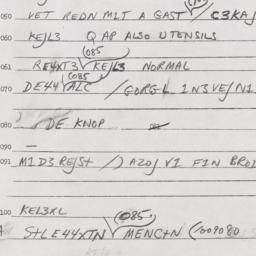 050 VET REDN MLT A GAST / C3KAJ
060 KEJL3 Q AP ALSO UTENSILS
(085
061 RE4XT3 KEJL3 NORMAL
(085
070 DE44 ALC / GORGL 1N3VEJN1
080 / DE KNOP
090 —
091 M1D3REJS+ /) AZOJ V1 F1N BROD
100 KEL3XL
(085)
S+LE44XTN MENC+N (/009080